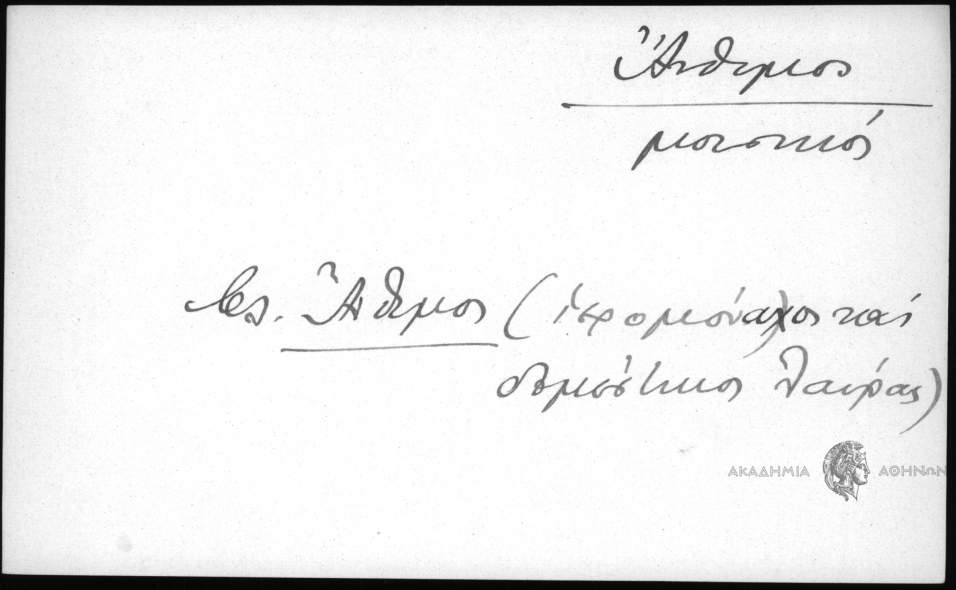 Ἄνθιμος
μουσικός
Βλ. Ἄνθιμος (ἱερομόναχος καὶ
δομέστικος Λαύρας)
ΑΚΑΔΗΜΙΑ ΑΘΗΝΩΝ